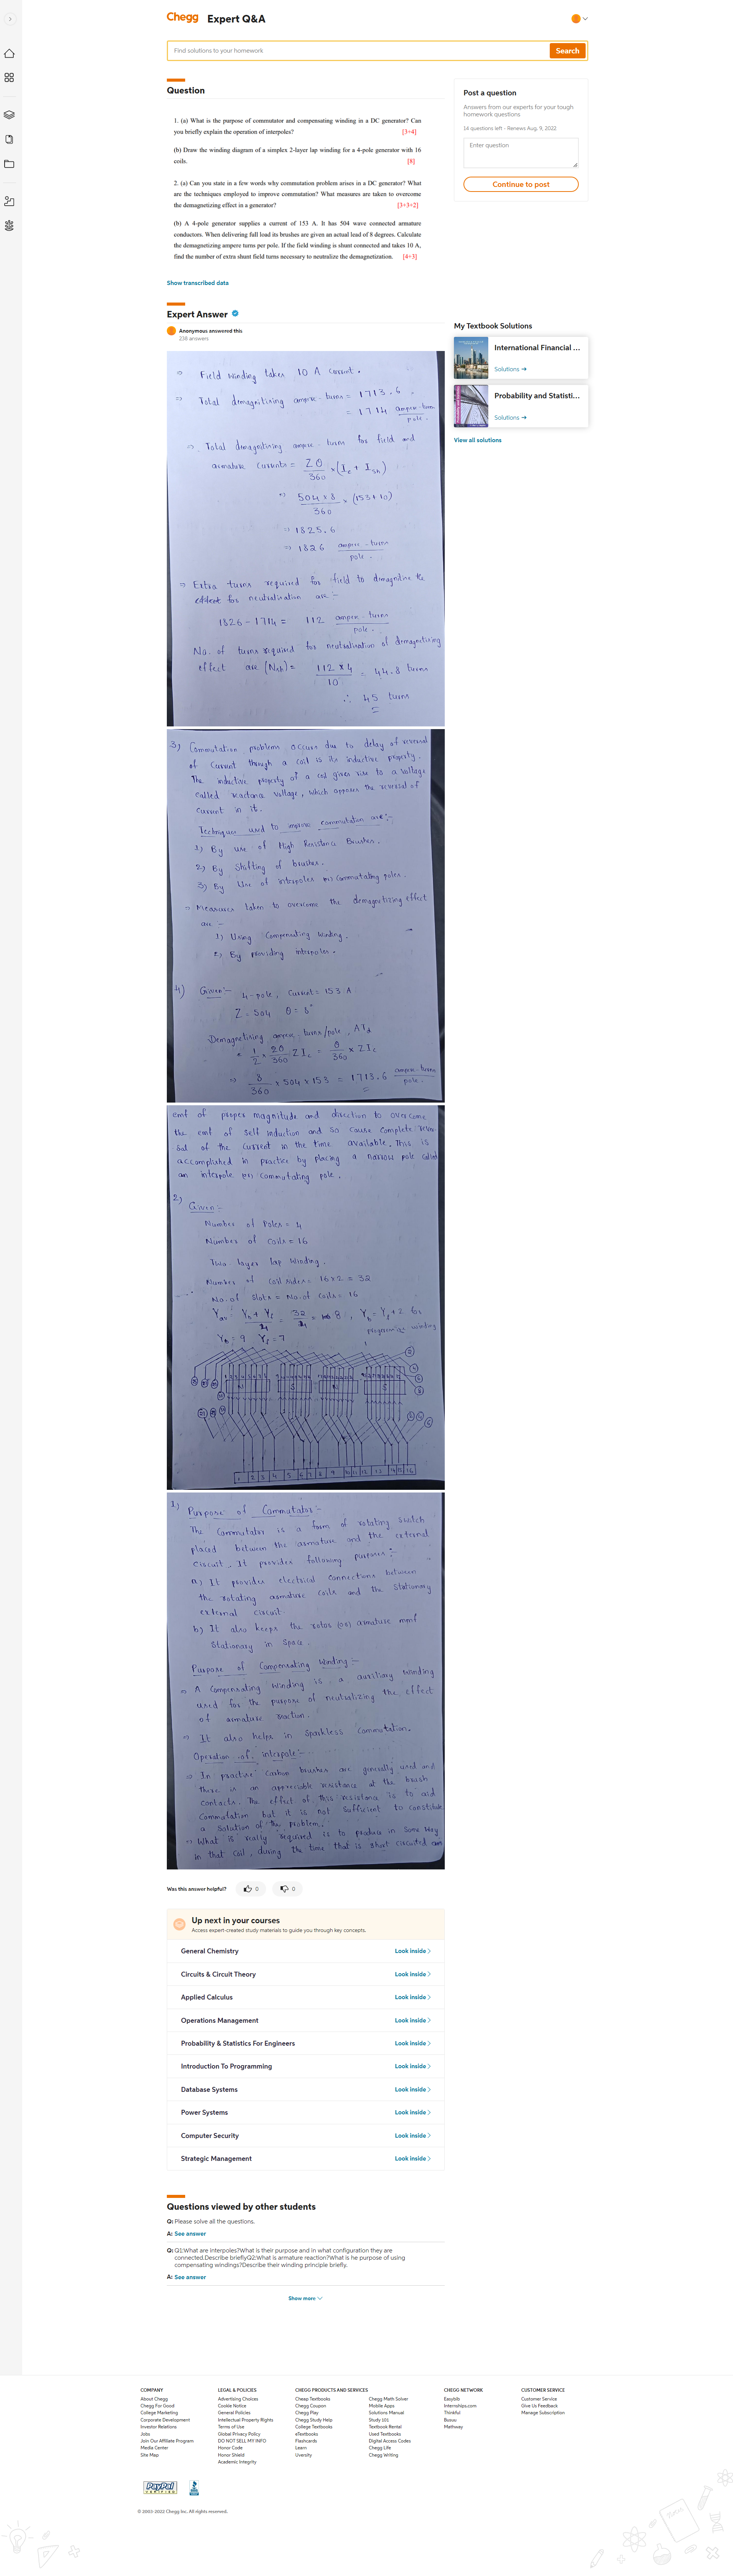 Chegg Expert Q&A
Find solutions to your homework
Search
Question
1. (a) What is the purpose of commutator and compensating winding in a DC generator? Can
you briefly explain the operation of interpoles? [3+4]
(b) Draw the winding diagram of a simplex 2-layer lap winding for a 4-pole generator with 16
coils. [8]
2. (a) Can you state in a few words why commutation problem arises in a DC generator? What
are the techniques employed to improve commutation? What measures are taken to overcome
the demagnetizing effect in a generator? [3+3+2]
(b) A 4-pole generator supplies a current of 153 A. It has 504 wave connected armature
conductors. When delivering full load its brushes are given an actual lead of 8 degrees. Calculate
the demagnetizing ampere turns per pole. If the field winding is shunt connected and takes 10 A,
find the number of extra shunt field turns necessary to neutralize the demagnetization. [4+3]
Show transcribed data
Post a question
Answers from our experts for your tough
homework questions
14 questions left - Renews Aug. 9, 2022
Enter question
Continue to post
Expert Answer
Anonymous answered this
238 answers
⇒ Field winding takes 10 A current.
⇒ Total demagnitising ampere-turns = 1713.6
= 1714 ampere-turn
pole.
⇒ Total demagnitising ampere-turns for field and
armature currents = Zθ/360 × (Ic + Ish)
⇒ 504×8/360 × (153+10)
⇒ 1825.6
⇒ 1826 ampere-turns
pole.
⇒ Extra turns required for field to dimagnitise the
effect for neutralisation are :-
1826 - 1714 = 112 ampere-turns
pole.
No. of turns required for neutralisation of demagnetising
effect are (Nsh) = 112×4/10 = 44.8 turns
∴ 45 turns
3) Commutation problem occurs due to delay of reversal
of current through a coil is its inductive property.
The inductive property of a coil gives rise to a voltage
called reactance voltage, which opposes the reversal of
current in it.
Techniques used to improve commutation are:-
1) By use of High Resistance Brushes.
2) By Shifting of brushes.
3) By Use of interpoles (or) commutating poles.
⇒ Measures taken to overcome the demagnetizing effect
are -
1) Using Compensating winding.
2) By providing interpoles.
4) Given:- 4-pole, Current = 153 A
Z = 504 θ = 8°
Demagnetising ampere turns/pole, ATd
= 1/2 × 2θ/360 ZIc = θ/360 × ZIc
⇒ 8/360 × 504 × 153 = 1713.6 ampere-turns
pole.
emf of proper magnitude and direction to overcome
the emf of self induction and so cause complete rever-
sal of the current in the time available. This is
accomplished in practice by placing a narrow pole called
an interpole (or) commutating pole.
2)
Given:-
Number of Poles = 4
Number of coils = 16
Two layer lap winding.
Number of coil sides = 16×2 = 32
No. of Slots = No. of coils = 16
= 32/4 = 8, Yb = Yf + 2 for
progressive winding
Yb = 9 Yf = 7
N S N S
1) Purpose of Commutator :-
The Commutator is a form of rotating switch
placed between the armature and the external
circuit. It provides following purposes :-
a) It provides electrical connections between
the rotating armature coils and the Stationary
external circuit.
b) It also keeps the rotor (or) armature mmf
Stationary in Space.
Purpose of Compensating Winding :-
⇒ A Compensating winding is a auxiliary winding
used for the purpose of neutralizing the effect
of armature reaction.
⇒ It also helps in Sparkless Commutation.
Operation of interpole :-
⇒ In practice carbon brushes are generally used and
there is an appreciable resistance at the brush
contacts. The effect of this resistance is to aid
commutation but it is not sufficient to constitute
a Solution of the problem.
⇒ What is really required is to produce in some way
in that coil, during the time that is short circuited an
My Textbook Solutions
International Financial ...
Solutions
Probability and Statisti...
Solutions
View all solutions
Was this answer helpful? 0 0
Up next in your courses
Access expert-created study materials to guide you through key concepts.
General Chemistry Look inside
Circuits & Circuit Theory Look inside
Applied Calculus Look inside
Operations Management Look inside
Probability & Statistics For Engineers Look inside
Introduction To Programming Look inside
Database Systems Look inside
Power Systems Look inside
Computer Security Look inside
Strategic Management Look inside
Questions viewed by other students
Q: Please solve all the questions.
A: See answer
Q: Q1:What are interpoles?What is their purpose and in what configuration they are
connected.Describe brieflyQ2:What is armature reaction?What is he purpose of using
compensating windings?Describe their winding principle briefly.
A: See answer
Show more
COMPANY
About Chegg
Chegg For Good
College Marketing
Corporate Development
Investor Relations
Jobs
Join Our Affiliate Program
Media Center
Site Map
LEGAL & POLICIES
Advertising Choices
Cookie Notice
General Policies
Intellectual Property Rights
Terms of Use
Global Privacy Policy
DO NOT SELL MY INFO
Honor Code
Honor Shield
Academic Integrity
CHEGG PRODUCTS AND SERVICES
Cheap Textbooks
Chegg Coupon
Chegg Play
Chegg Study Help
College Textbooks
eTextbooks
Flashcards
Learn
Uversity
Chegg Math Solver
Mobile Apps
Solutions Manual
Study 101
Textbook Rental
Used Textbooks
Digital Access Codes
Chegg Life
Chegg Writing
CHEGG NETWORK
EasyBib
Internships.com
Thinkful
Busuu
Mathway
CUSTOMER SERVICE
Customer Service
Give Us Feedback
Manage Subscription
PayPal
VERIFIED
© 2003-2022 Chegg Inc. All rights reserved.